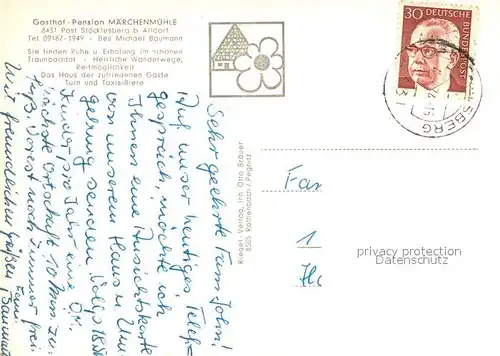 Gasthof - Pension MÄRCHENMÜHLE
8431 Post Stöcklesberg b Altdorf
Tel. 09187-1949 - Bes Michael Baumann
Sie finden Ruhe u Erholung im schönen
Traunbachtal - Herrliche Wanderwege,
Reitmöglichkeit
Das Haus der zufriedenen Gäste
Turn und Taxisi-Biere
30
DEUTSCHE
BUNDESPOST
SBERG
Sehr geehrte Fam John!
Auf unser heutiges Telef.-
gespräch, möchte ich
Ihnen eine Ansichtskarte
von unserem Haus u. Um
gebung senden.
Kinder, pro Jahr eine
nächste Ortschaft 10 Min zu
Fuß. Vorerst noch Zimmer frei
Mit freundlichen Grüßen
Fam.
Baumann
Riegel - Verlag, Inh. Otto Bräuer
8505 Röthenbach / Pegnitz
Fam
1
privacy protection
watermark